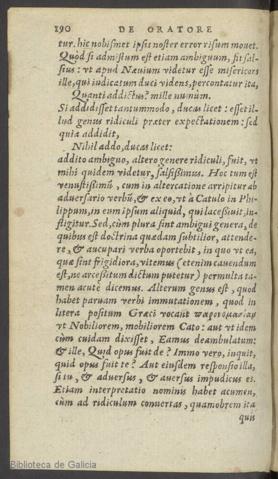 190 DE ORATORE
tur. hîc nobismet ipsis noster error risum mouet.
Quòd si admistum est etiam ambiguum, fit sal-
sius: vt apud Næuium videtur esse misericors
ille, qui iudicatum duci videns, percontatur ita,
Quanti addictus? mille nummûm.
Si addidisset tantummodo, ducas licet: esset il-
lud genus ridiculi præter expectationem: sed
quia addidit,
Nihil addo, ducas licet:
addito ambiguo, altero genere ridiculi, fuit, vt
mihi quidem videtur, salsißimus. Hoc tum est
venustißimũ, cum in altercatione arripitur ab
aduersario verbũ, & ex eo, vt à Catulo in Phi-
lippum, in eum ipsum aliquid, qui lacessiuit, in-
fligitur. Sed, cùm plura sint ambigui genera, de
quibus est doctrina quædam subtilior, attende-
re, & aucupari verba oportebit, in quo vt ea,
quæ sint frigidiora, vitemus (etenim cauendum
est, ne arcessitum dictum putetur) permulta ta-
men acutè dicemus. Alterum genus est, quod
habet paruam verbi immutationem, quod in
litera positum Græci vocant παρονομασίαν
vt Nobiliorem, mobiliorem Cato: aut vt idem
cùm cuidam dixisset, Eamus deambulatum:
& ille, Quid opus fuit de? Immo vero, inquit,
quid opus fuit te? Aut eiusdem responsio illa,
si tu, & aduersus, & auersus impudicus es.
Etiam interpretatio nominis habet acumen,
cùm ad ridiculum conuertas, quamobrem ita
quis
Biblioteca de Galicia